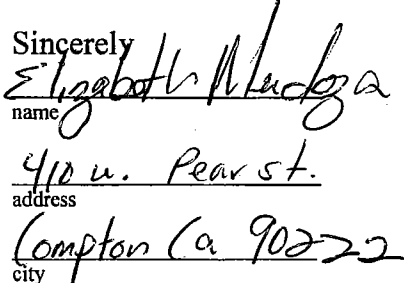 Sincerely
Elizabeth Mendoza
name
410 w. Pear st.
address
Compton Ca 90222
city